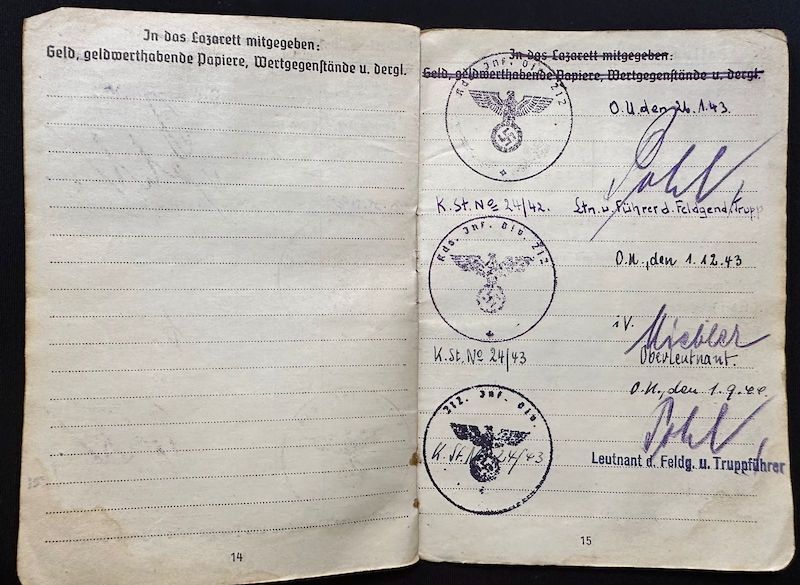 In das Lazarett mitgegeben:
Geld, geldwerthabende Papiere, Wertgegenstände u. dergl.
14
In das Lazarett mitgegeben:
Geld, geldwerthabende Papiere, Wertgegenstände u. dergl.
Kds. Inf. Div. 212
O.U. den 26.1.43.
Pohl
K. St. No 24/42.
Ltn. u. Führer d. Feldgend. Trupp
Kds. Inf. Div. 212
O.U., den 1.12.43
i.V.
K. St. No 24/43
Oberleutnant.
O.U., den 1.9.44
212. Inf. Div.
K. St. No 24/43
Pohl
Leutnant d. Feldg. u. Truppführer
15